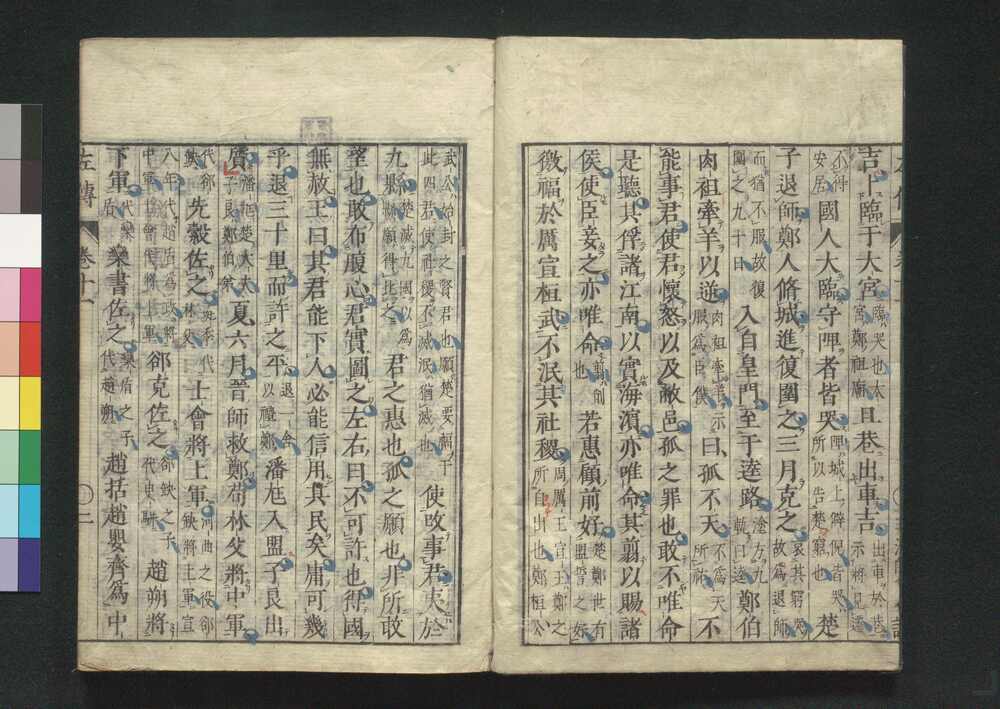 吉卜臨于大宮臨哭也大宮鄭祖廟且巷出車吉出車於巷示將見遷
不得安居國人大臨守陴者皆哭陴城上僻倪皆哭所以告楚窮也楚
子退師鄭人脩城進復圍之三月克之哀其窮哭故爲退師
而猶不服故復圍之九十日入自皇門至于逵路塗方九軌曰逵鄭伯
肉袒牽羊以逆肉袒牽羊示服爲臣僕曰孤不天不爲天所祐不
能事君使君懷怒以及敝邑孤之罪也敢不唯命
是聽其俘諸江南以實海濱亦唯命其翦以賜諸
侯使臣妾之亦唯命翦削也若惠顧前好楚鄭世有盟誓之好
徼福於厲宣桓武不泯其社稷周厲王宣王鄭之所自出也鄭桓公
武公始封之賢君也願楚要福于此四君使社稷不泯泯猶滅也使改事君夷於
九縣楚滅九國以爲縣願得比之君之惠也孤之願也非所敢
望也敢布腹心君實圖之左右曰不可許也得國
無赦王曰其君能下人必能信用其民矣庸可幾
乎退三十里而許之平退一舍以禮鄭潘尪入盟子良出
質潘尪楚大夫子良鄭伯弟夏六月晉師救鄭荀林父將中軍
代郤缺先縠佐之彘季代林父士會將上軍河曲之役郤缺將上軍宣
八年代趙盾爲政將中軍士會代將上軍郤克佐之郤缺之子代臾駢趙朔將
下軍代欒盾欒書佐之欒盾之子代趙朔趙括趙嬰齊爲中
左傳 卷十一 二